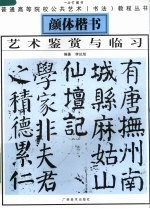 普通高等院校公共艺术（书法）教程丛书
颜体楷书
艺术鉴赏与临习
有唐撫州南
城縣麻姑山
仙壇記
學家非夫君
之積德累仁
广西美术出版社